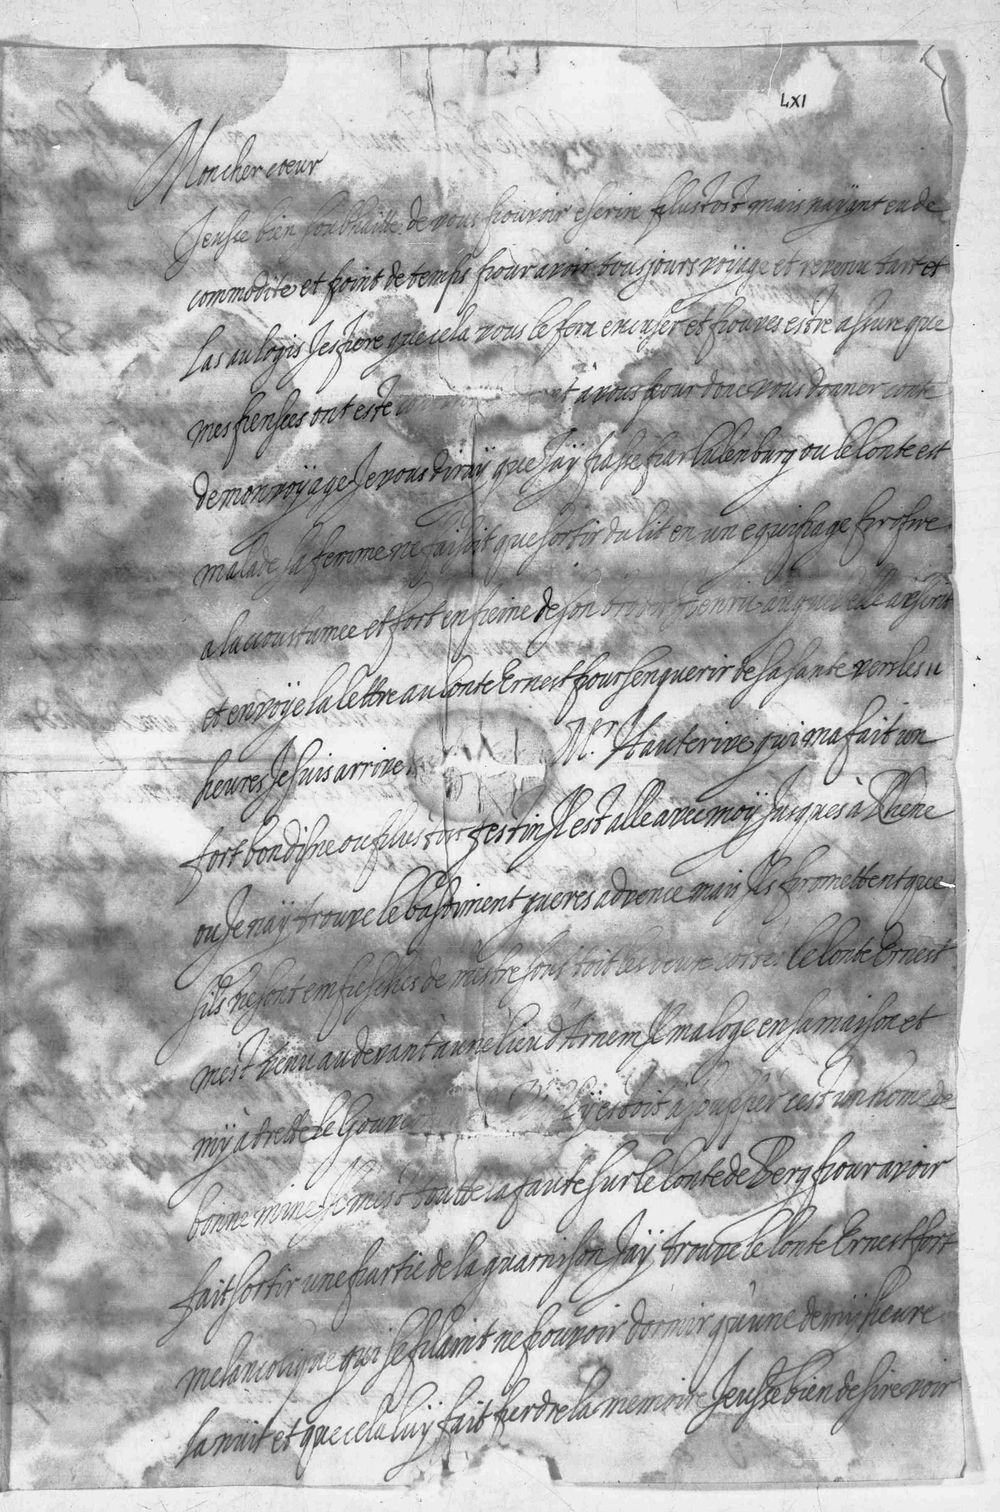 LXI
Mon cher coeur
Jeusse bien souhaitte de vous pouvoir escrire plustost mais nayant eu de
commodite et point de temps pour avoir tousjours voyage et revenu tart et
las au logis Jespere que cela vous le fera excuser et pouves estre assure que
mes pensees ont este a vous pour donc vous donner conte
de mon voyage Je vous diray que Jay passe par Culenburg ou le Conte est
malade sa femme ne faisoit que sortir du lit en un equipage propre
a la coustumee et fort en peine de son auquel elle a escrit
et envoye la lettre au Conte Ernest pour senquerir de sa sante vers les
heures Je suis arrive Mr. Hauterive qui ma fait un
fort bon disne ou plus tost festin Il est alle avec moy Jusques à Rhene
ou Je nay trouve le bastiment gueres advence mais Ils promettent que
sils ne sont empesches de mestre sous toit les deux le Conte Ernest
mest venu au devant à une lieu d'Arnem Il ma loge en sa maison et
my a trette Le Gouver y estoit a soupper cest un home de
bonne mine Il mest toutte la faute sur le Conte de Berg pour avoir
fait sortir une partie de la guarnison Jay trouve le Conte Ernest fort
melancolique qui se plaint ne pouvoir dormir qu'une demy heure
la nuit et que cela luy fait perdre la memoire Jeusse bien desire voir